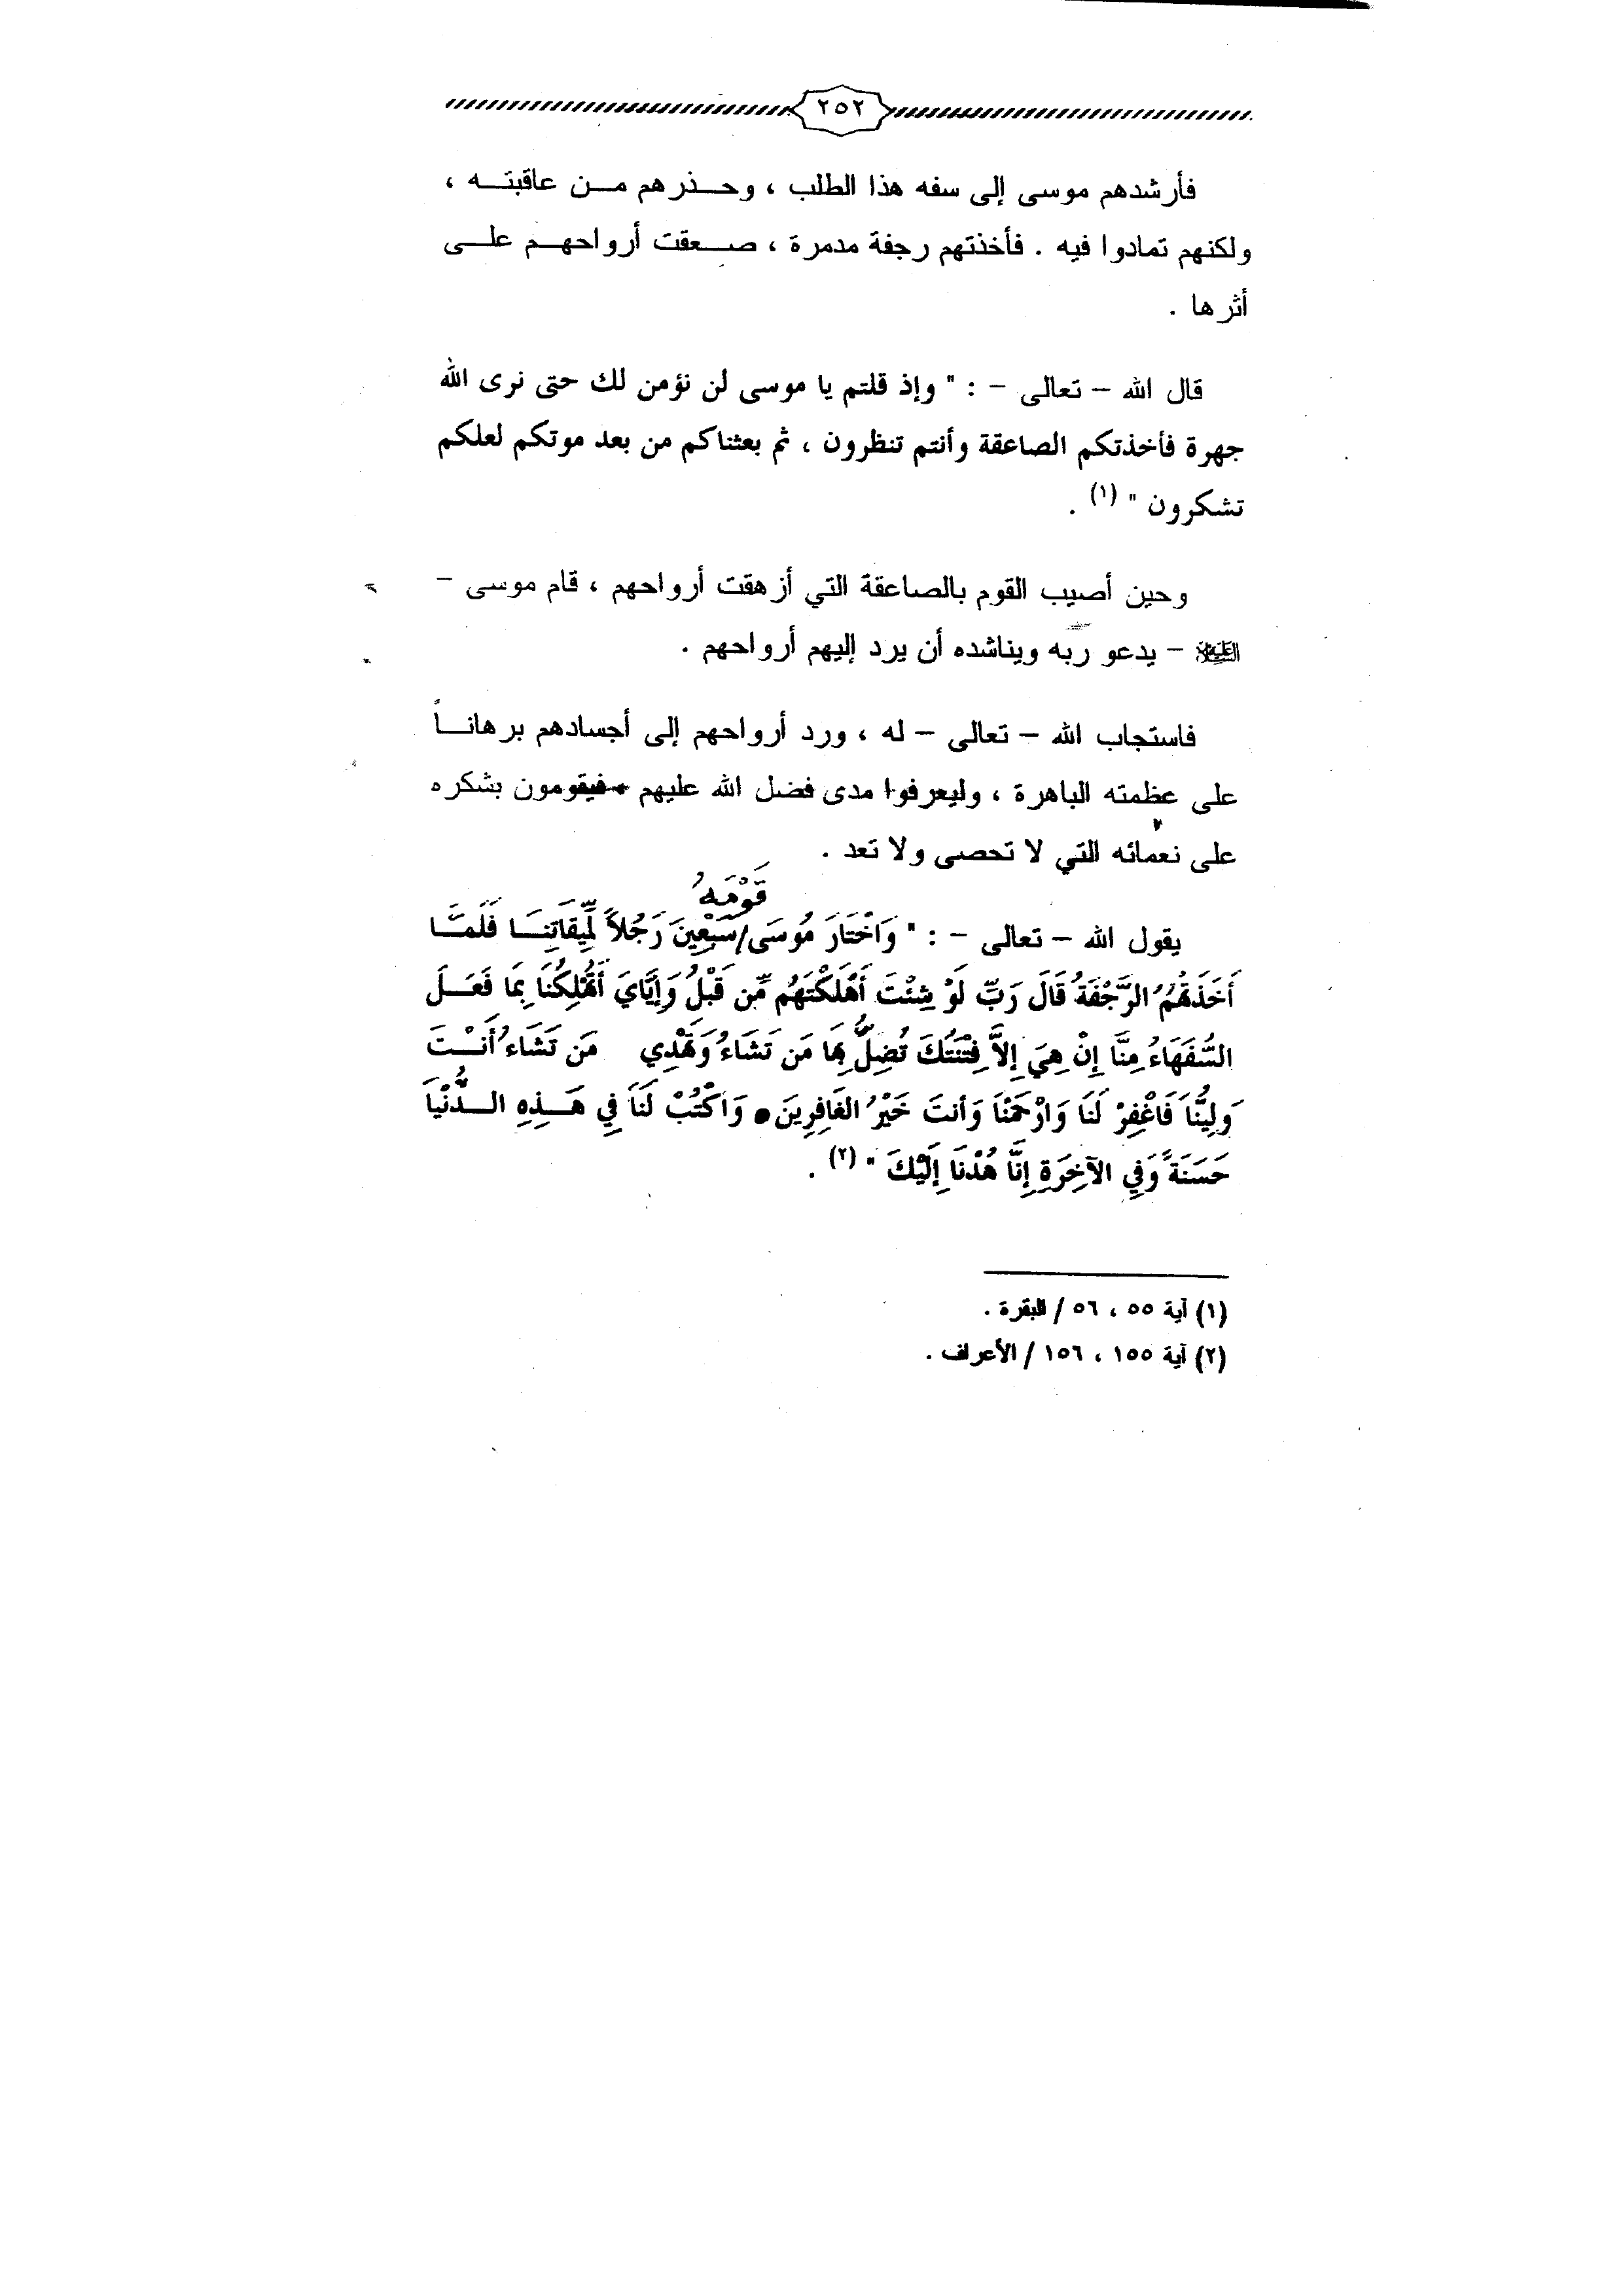 ٢٥٢
فأرشدهم موسى إلى سفه هذا الطلب ، وحـــذرهم مـــن عاقبتـــه ،
ولكنهم تمادوا فيه . فأخذتهم رجفة مدمرة ، صـــعقت أرواحهـــم علـــى
أثرها .
قال الله – تعالى – : " وإذ قلتم يا موسى لن نؤمن لك حتى نرى الله
جهرة فأخذتكم الصاعقة وأنتم تنظرون ، ثم بعثناكم من بعد موتكم لعلكم
تشكرون " (١) .
وحين أصيب القوم بالصاعقة التي أزهقت أرواحهم ، قام موسى –
الْعَلَيْهِ السَّلَام – يدعو ربه ويناشده أن يرد إليهم أرواحهم .
فاستجاب الله – تعالى – له ، ورد أرواحهم إلى أجسادهم برهانـــاً
على عظمته الباهرة ، وليعرفوا مدى فضل الله عليهم فيقومون بشكره
على نعمائه التي لا تحصى ولا تعد .
قَوْمَهُ
يقول الله – تعالى – : " وَاخْتَارَ مُوسَى/سَبْعِينَ رَجُلاً لِّمِيقَاتِنَـــا فَلَمَّـــا
أَخَذَتْهُمُ الرَّجْفَةُ قَالَ رَبِّ لَوْ شِئْتَ أَهْلَكْتَهُم مِّن قَبْلُ وَإِيَّايَ أَتُهْلِكُنَا بِمَا فَعَـــلَ
السُّفَهَاءُ مِنَّا إِنْ هِيَ إِلاَّ فِتْنَتُكَ تُضِلُّ بِهَا مَن تَشَاءُ وَتَهْدِي مَن تَشَاءُ أَنـــتَ
وَلِيُّنَا فَاغْفِرْ لَنَا وَارْحَمْنَا وَأَنتَ خَيْرُ الغَافِرِينَ • وَاكْتُبْ لَنَا فِي هَـــذِهِ الـــدُّنْيَا
حَسَنَةً وَفِي الآخِرَةِ إِنَّا هُدْنَا إِلَيْكَ " (٢) .
(١) آية ٥٥ ، ٥٦ / البقرة .
(٢) آية ١٥٥ ، ١٥٦ / الأعراف .